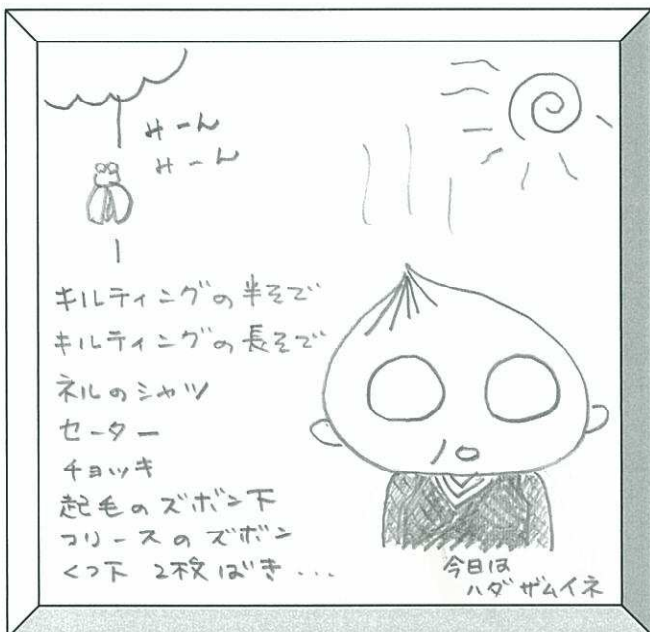 みーん
みーん
キルティングの半そで
キルティングの長そで
ネルのシャツ
セーター
チョッキ
起毛のズボン下
フリースのズボン
くつ下 2枚ばき...
今日は
ハダザムイネ